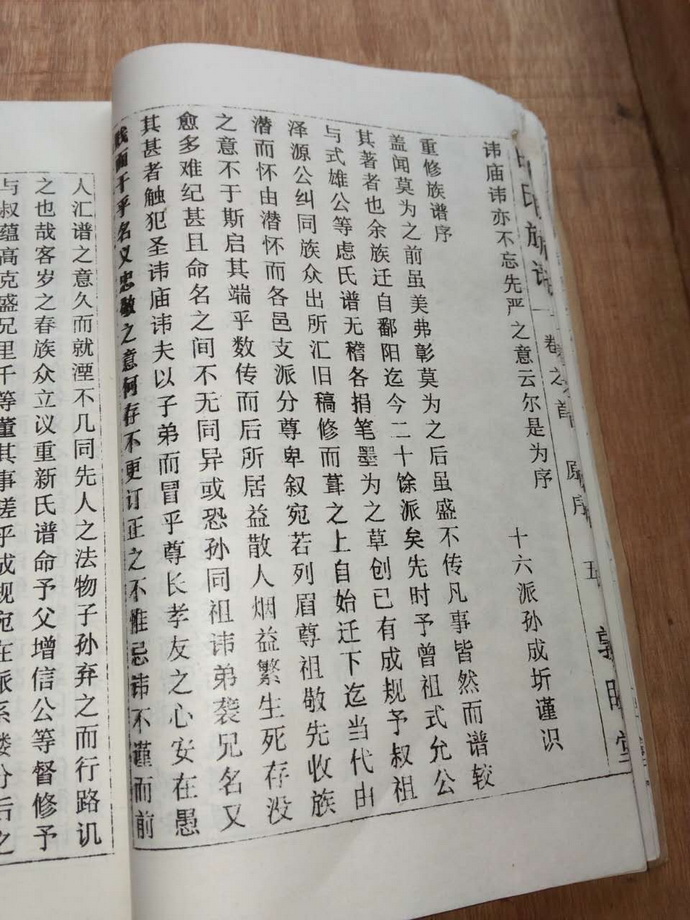 族谱
卷之首
原序
五
讳庙讳亦不忘先严之意云尔是为序
十六派孙成圻谨识
重修族谱序
盖闻莫为之前虽美弗彰莫为之后虽盛不传凡事皆然而谱较
其著者也余族迁自鄱阳迄今二十馀派矣先时予曾祖式允公
与式雄公等虑氏谱无稽各捐笔墨为之草创已有成规予叔祖
泽源公纠同族众出所汇旧稿修而葺之上自始迁下迄当代由
潜而怀由潜怀而各邑支派分尊卑叙宛若列眉尊祖敬先收族
之意不于斯启其端乎数传而后所居益散人烟益繁生死存没
愈多难纪甚且命名之间不无同异或恐孙同祖讳弟袭兄名又
其甚者触犯圣讳庙讳夫以子弟而冒乎尊长孝友之心安在愚
贱而干乎名义忠敬之意何存不更订正之不惟忌讳不谨而前
人汇谱之意久而就湮不几同先人之法物子孙弃之而行路讥
之也哉客岁之春族众立议重新氏谱命予父增信公等督修予
与叔蕴高克盛兄里千等董其事磋乎成规宛在派系缕分后之